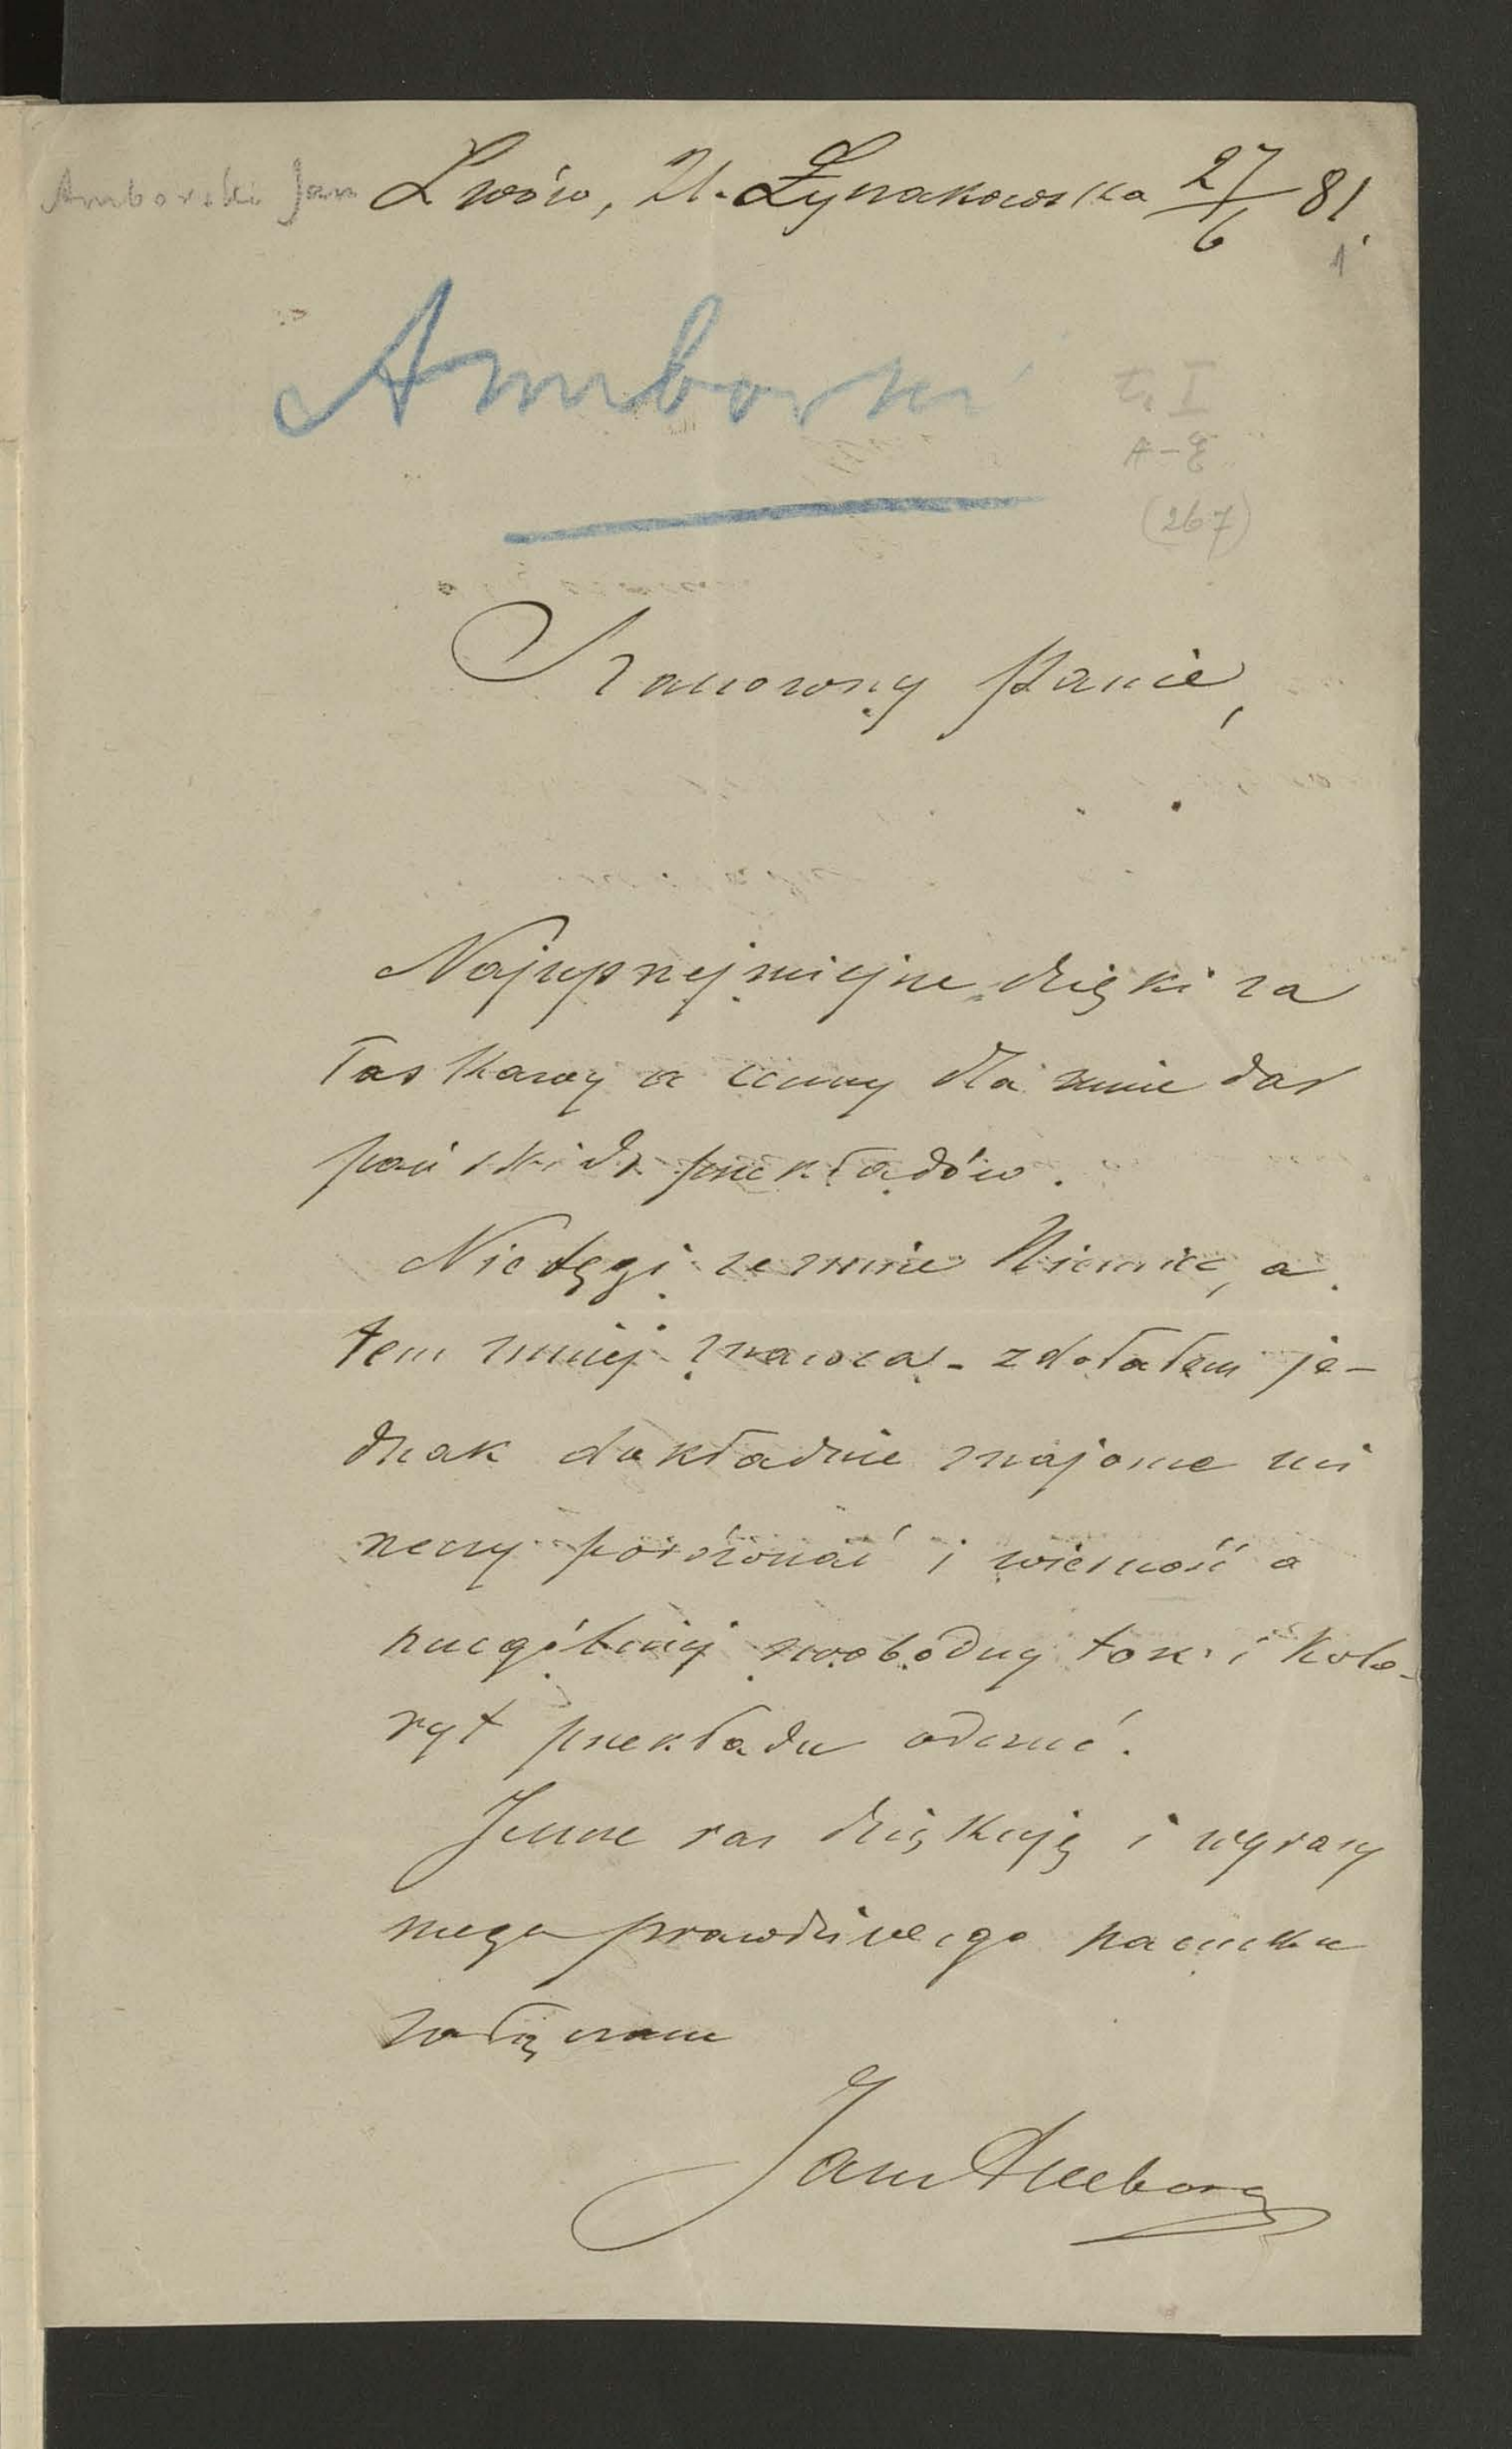 Amborski Jan Lwów, Ul. Łyczakowska 27/6 81.
1
Amborski
I
A-E
(267)
Szanowny Panie,
Najuprzejmiejsze dzięki za
łaskawy a cenny dla mnie dar
pańskich przekładów.
Nietęgi ze mnie Niemiec, a
tem mniej znawca - zdołałem je-
dnak dokładnie znajome mi
rzeczy porównać i wierność a
szczególniej swobodny tok i kolo-
ryt przekładu odczuć.
Jeszcze raz dziękuję i wyrazy
mego prawdziwego szacunku
załączam
Jan Amborski